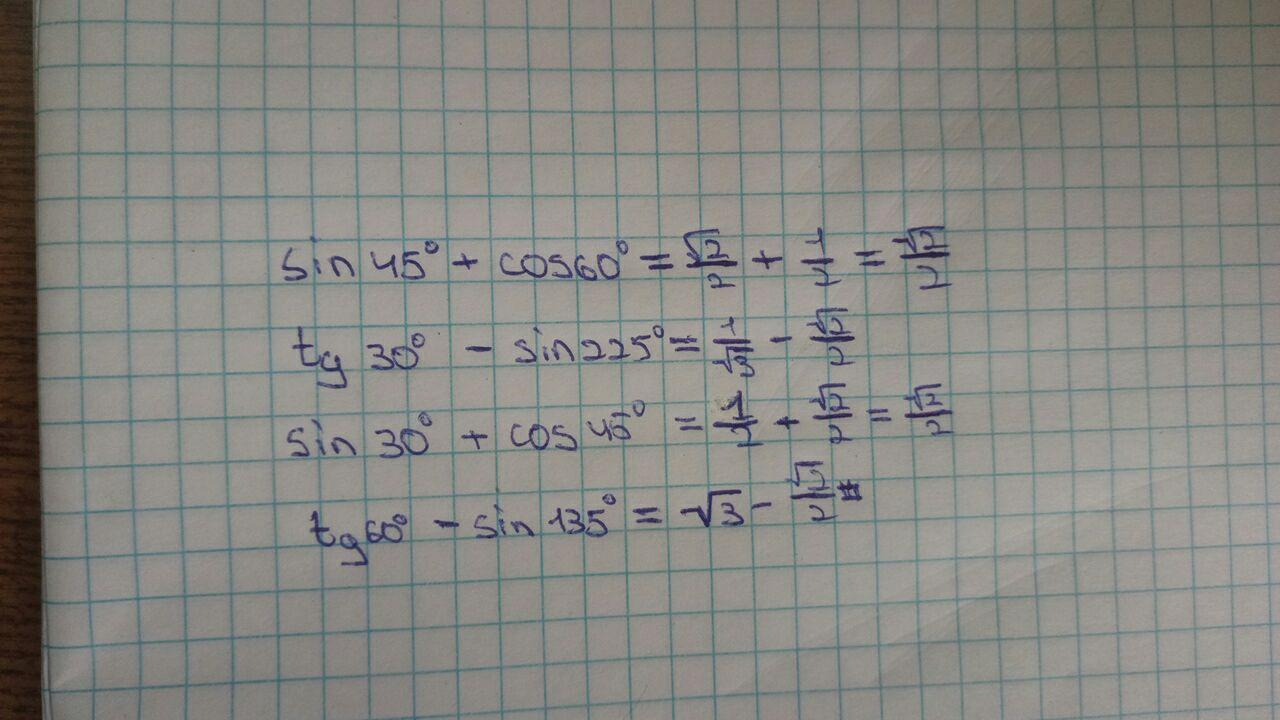 sin 45° + cos60° = √2/2 + 1/2 = √2/2
tg 30° - sin 225° = 1/√3 - √2/2
sin 30° + cos 45° = 1/2 + √2/2 = √2/2
tg60° - sin 135° = √3 - √2/2